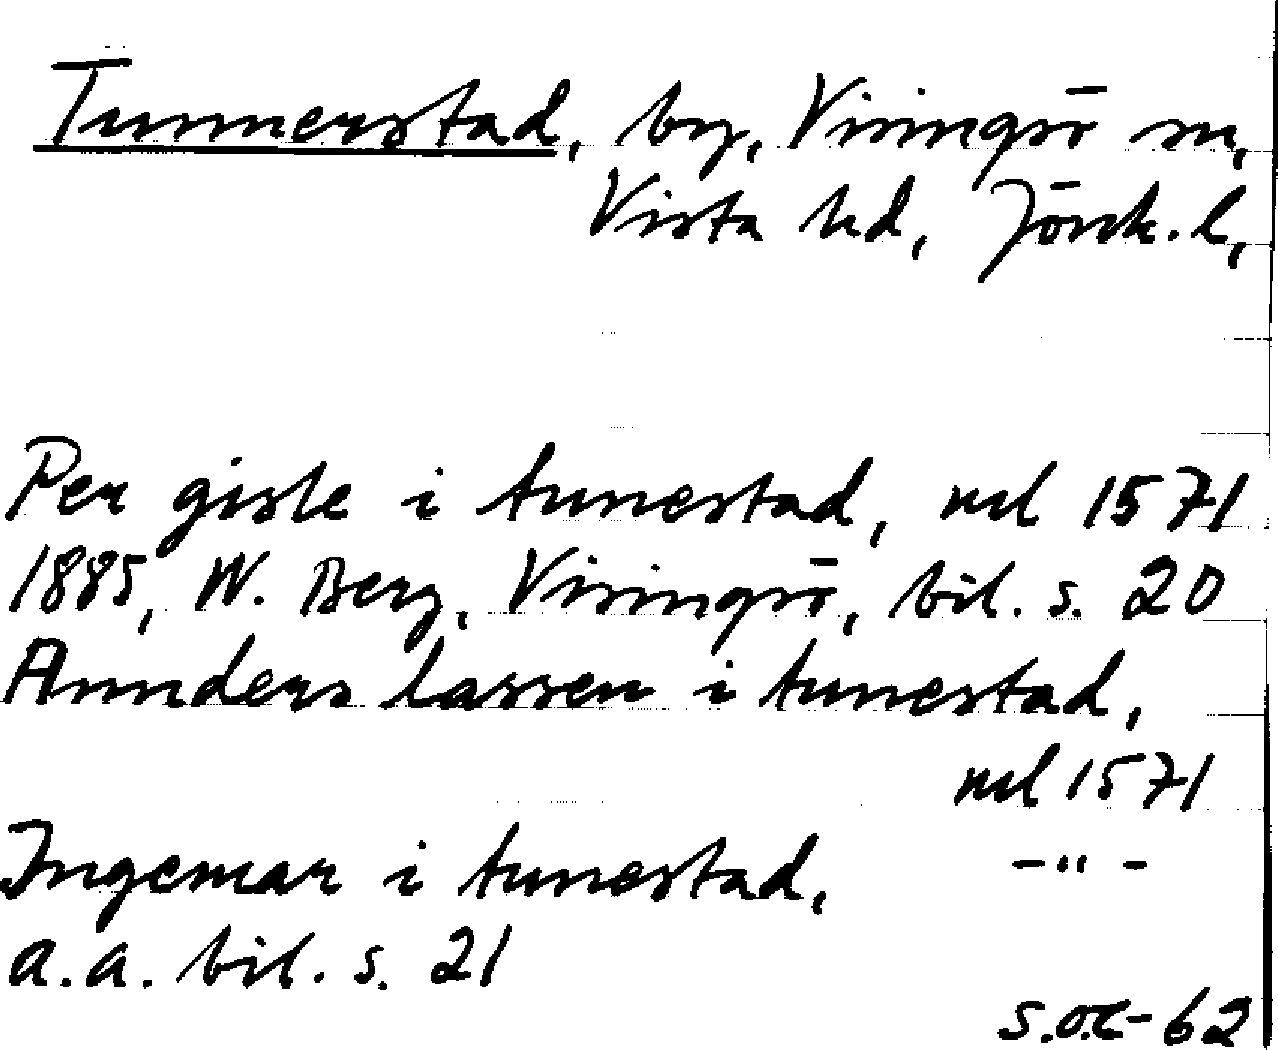 Tunnerstad, by, Visingsö sn,
Vista hd, Jönk. l,
Per gisle i tunestad, ml 1571
1885, W. Berg, Visingsö, bil. s. 20
Annders lassen i tunestad,
ml 1571
Ingemar i tunestad, -"-
a.a. bil. s. 21
S.O.C-62